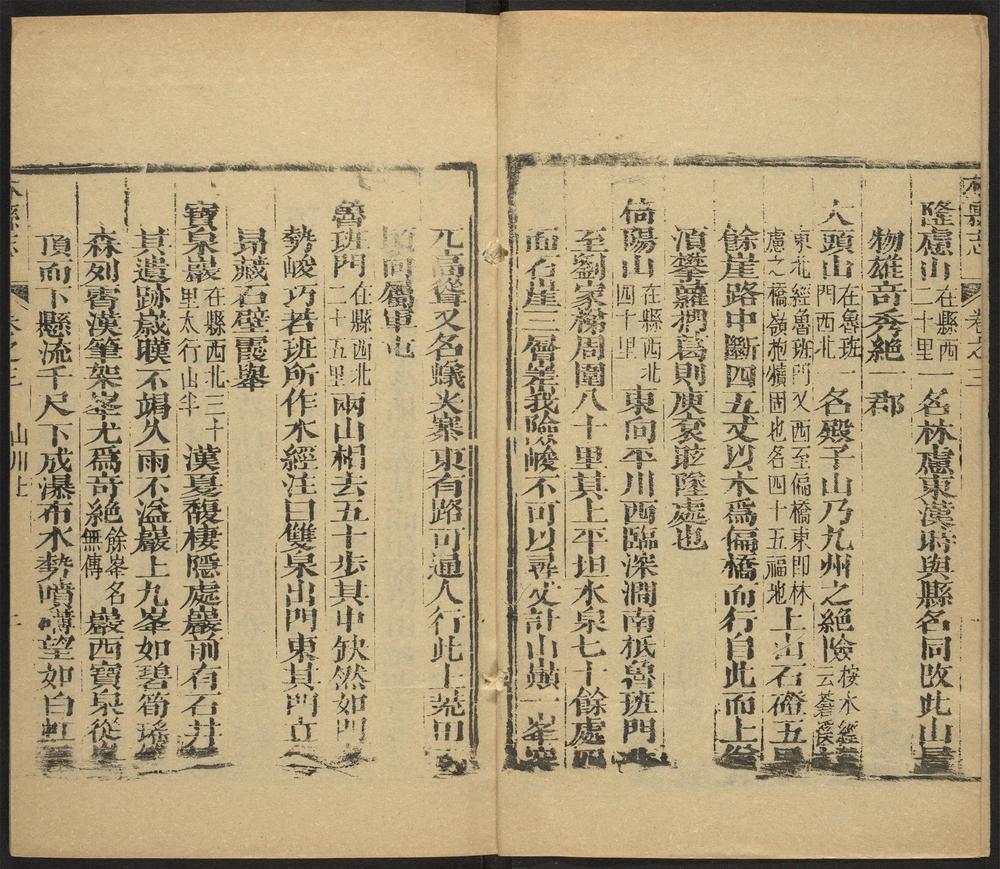 林縣志 卷之三
隆慮山在縣西二十里一名林慮東漢時與縣名同改此山
物雄奇秀絕一郡
人頭山在魯班門西北一名殿子山乃九州之絕險按水經云蒼溪
東北經魯班門又西至偏橋東即林慮之橋嶺抱犢固也名四十五福地上山石磴五里
餘崖路中斷四五丈以木為偏橋而行自此而上
頂攀蘿捫葛則庾袞眩墜處也
倚陽山在縣西北四十里東向平川西臨深澗南抵魯班門
至劉家梯周圍八十里其上平坦水泉七十餘處四
面石崖三層嵳我險峻不可以尋丈計山巔一峯
兀高聳又名蟻尖寨東有路可通人行此上荒田
頃向屬軍屯
魯班門在縣西北二十五里兩山相去五十步其中欽然如門
勢峻巧若班所作水經注曰雙泉出門東其門立
昂藏石壁霞舉
寶泉巖在縣西北三十里太行山半漢夏馥棲隱處巖前有石井
其遺跡歲暵不竭久雨不溢巖上九峯如碧筍瑤
森列霄漢筆架峯尤為奇絕餘峯名無傳巖西寶泉從
頂而下懸流千尺下成瀑布水勢噴薄望如白虹
林縣志 卷之三 山川上